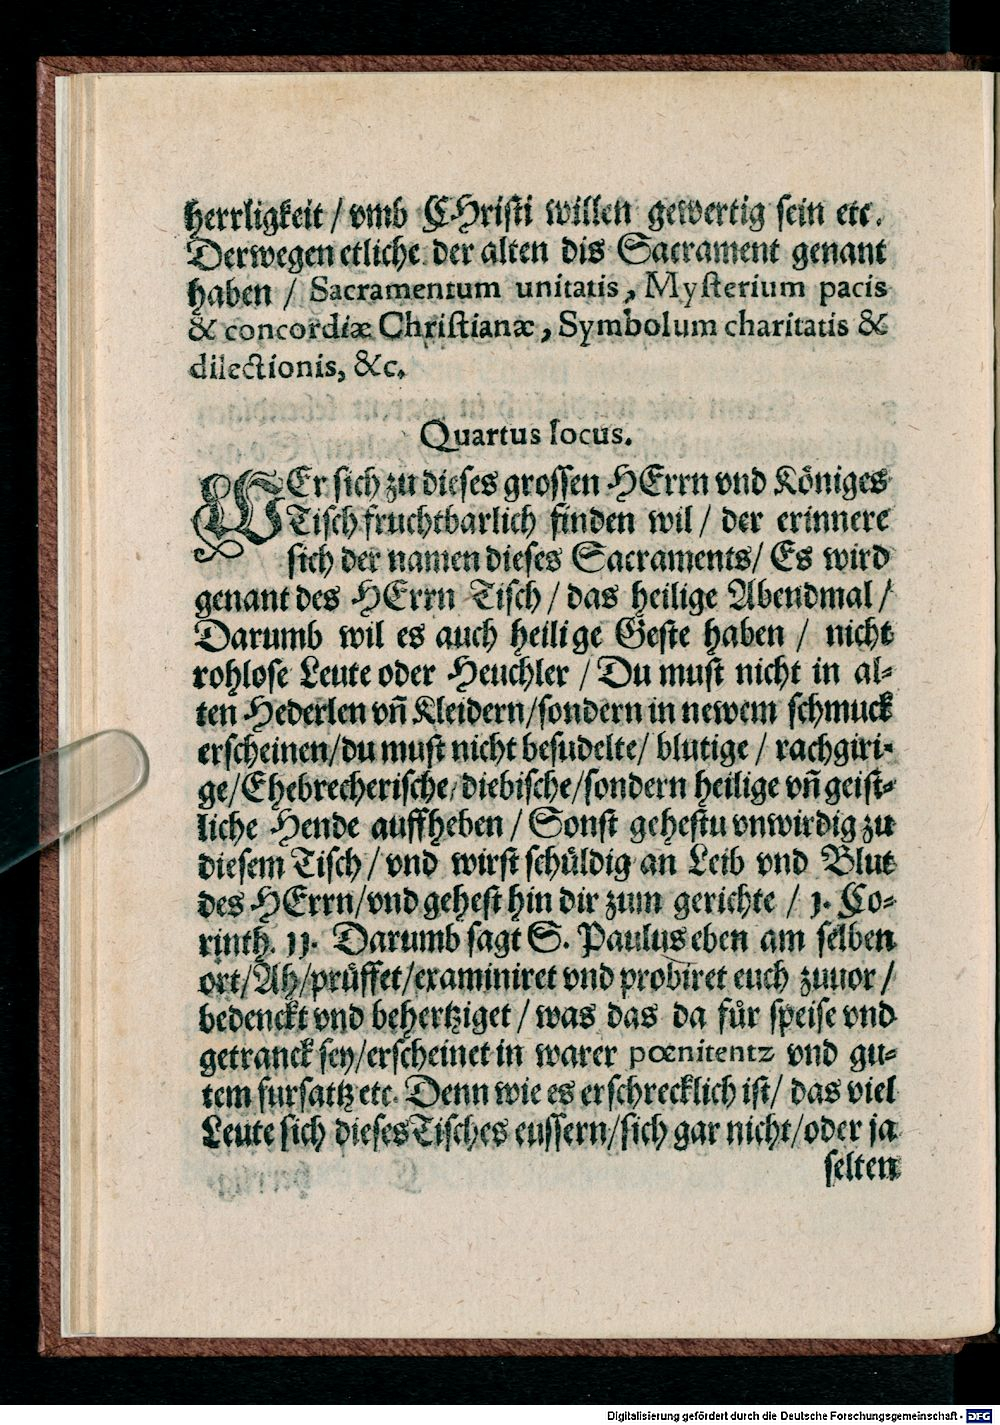 herrligkeit / vmb CHristi willen gewertig sein etc.
Derwegen etliche der alten dis Sacrament genant
haben / Sacramentum unitatis, Mysterium pacis
& concordiæ Christianæ, Symbolum charitatis &
dilectionis, &c.
Quartus locus.
WEr sich zu dieses grossen HErrn vnd Königes
Tisch fruchtbarlich finden wil / der erinnere
sich der namen dieses Sacraments / Es wird
genant des HErrn Tisch / das heilige Abendmal /
Darumb wil es auch heilige Geste haben / nicht
rohlose Leute oder Heuchler / Du must nicht in al-
ten Hederlen vñ Kleidern / sondern in newem schmuck
erscheinen / du must nicht besudelte / blutige / rachgiri-
ge / Ehebrecherische / diebische / sondern heilige vñ geist-
liche Hende auffheben / Sonst gehestu vnwirdig zu
diesem Tisch / vnd wirst schüldig an Leib vnd Blut
des HErrn / vnd gehest hin dir zum gerichte / 1. Co-
rinth. 11. Darumb sagt S. Paulus eben am selben
ort / Ah / prüffet / examiniret vnd probiret euch zuuor /
bedenckt vnd behertziget / was das da für speise vnd
getranck sey / erscheinet in warer pœnitentz vnd gu-
tem fursattz etc. Denn wie es erschrecklich ist / das viel
Leute sich dieses Tisches eussern / sich gar nicht / oder ja
selten
Digitalisierung gefördert durch die Deutsche Forschungsgemeinschaft - DFG